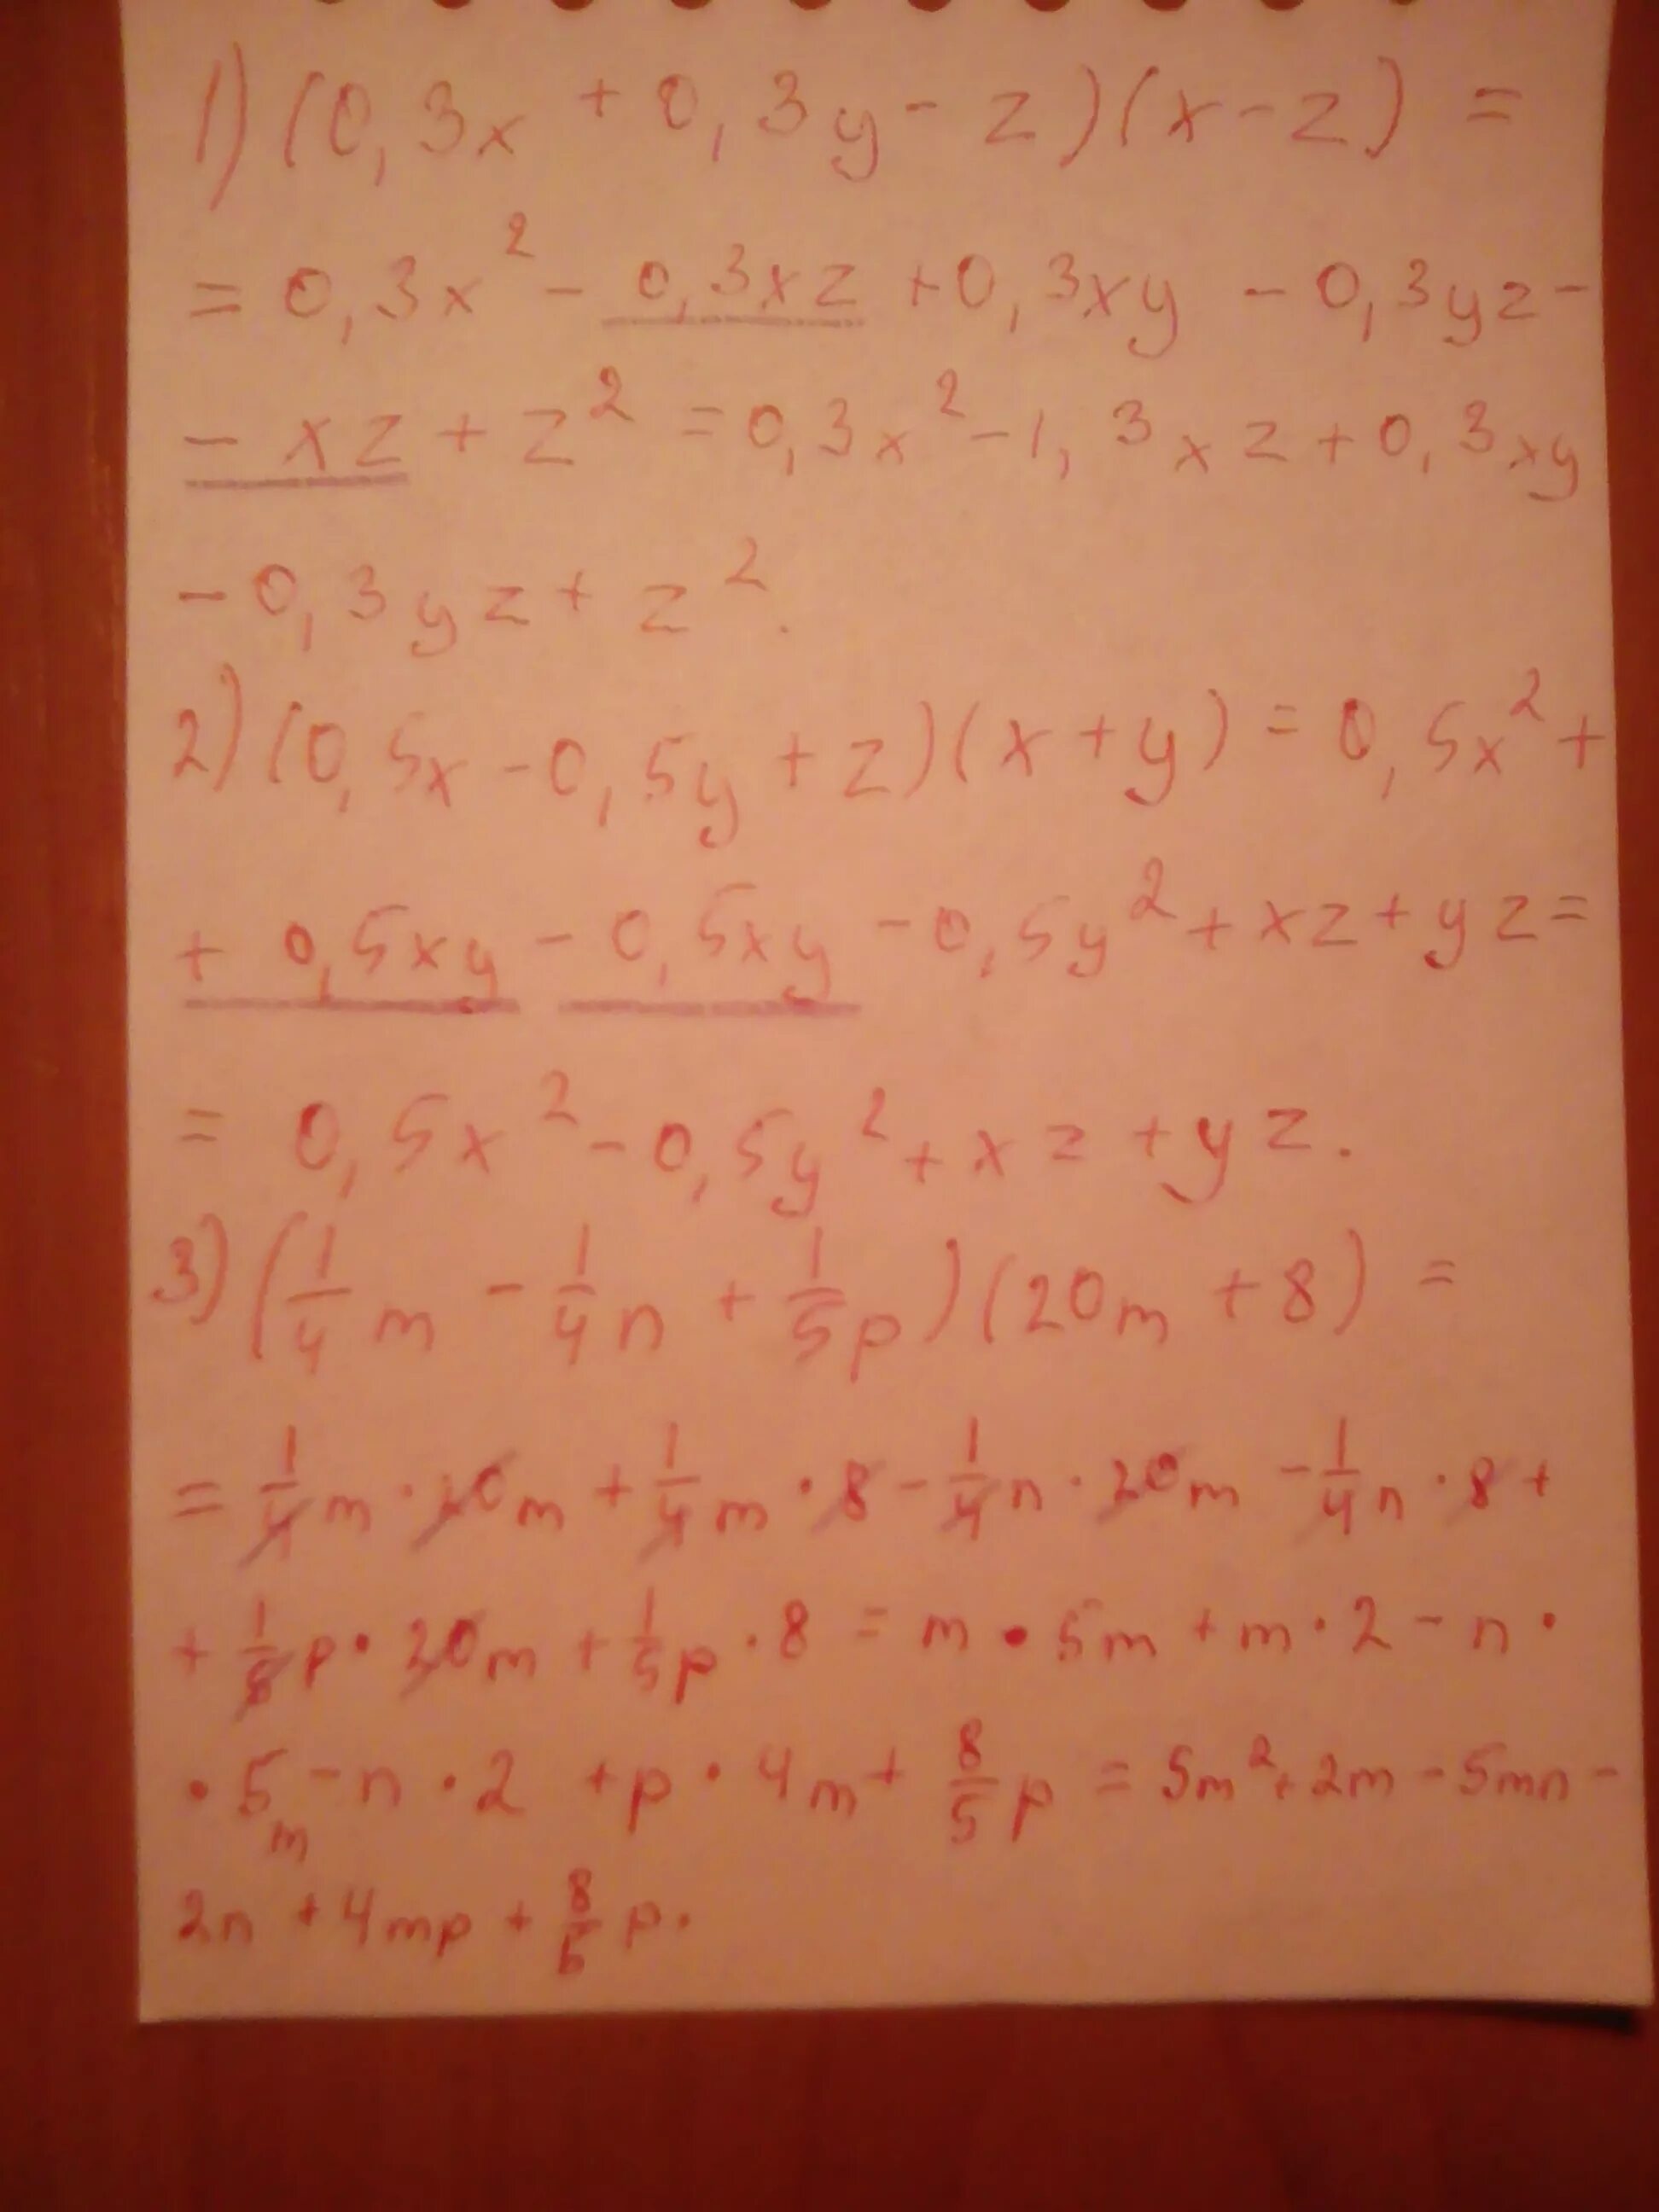 1) (0,3x + 0,3y - z)(x - z) =
= 0,3x² - 0,3xz + 0,3xy - 0,3yz -
- xz + z² = 0,3x² - 1,3xz + 0,3xy
- 0,3yz + z².
2) (0,5x - 0,5y + z)(x + y) = 0,5x² +
+ 0,5xy - 0,5xy - 0,5y² + xz + yz =
= 0,5x² - 0,5y² + xz + yz.
3) (1/4 m - 1/4 n + 1/5 p)(20m + 8) =
= 1/4 m · 20m + 1/4 m · 8 - 1/4 n · 20m - 1/4 n · 8 +
+ 1/5 p · 20m + 1/5 p · 8 = m · 5m + m · 2 - n ·
· 5m - n · 2 + p · 4m + 8/5 p = 5m² + 2m - 5mn -
2n + 4mp + 8/5 p.